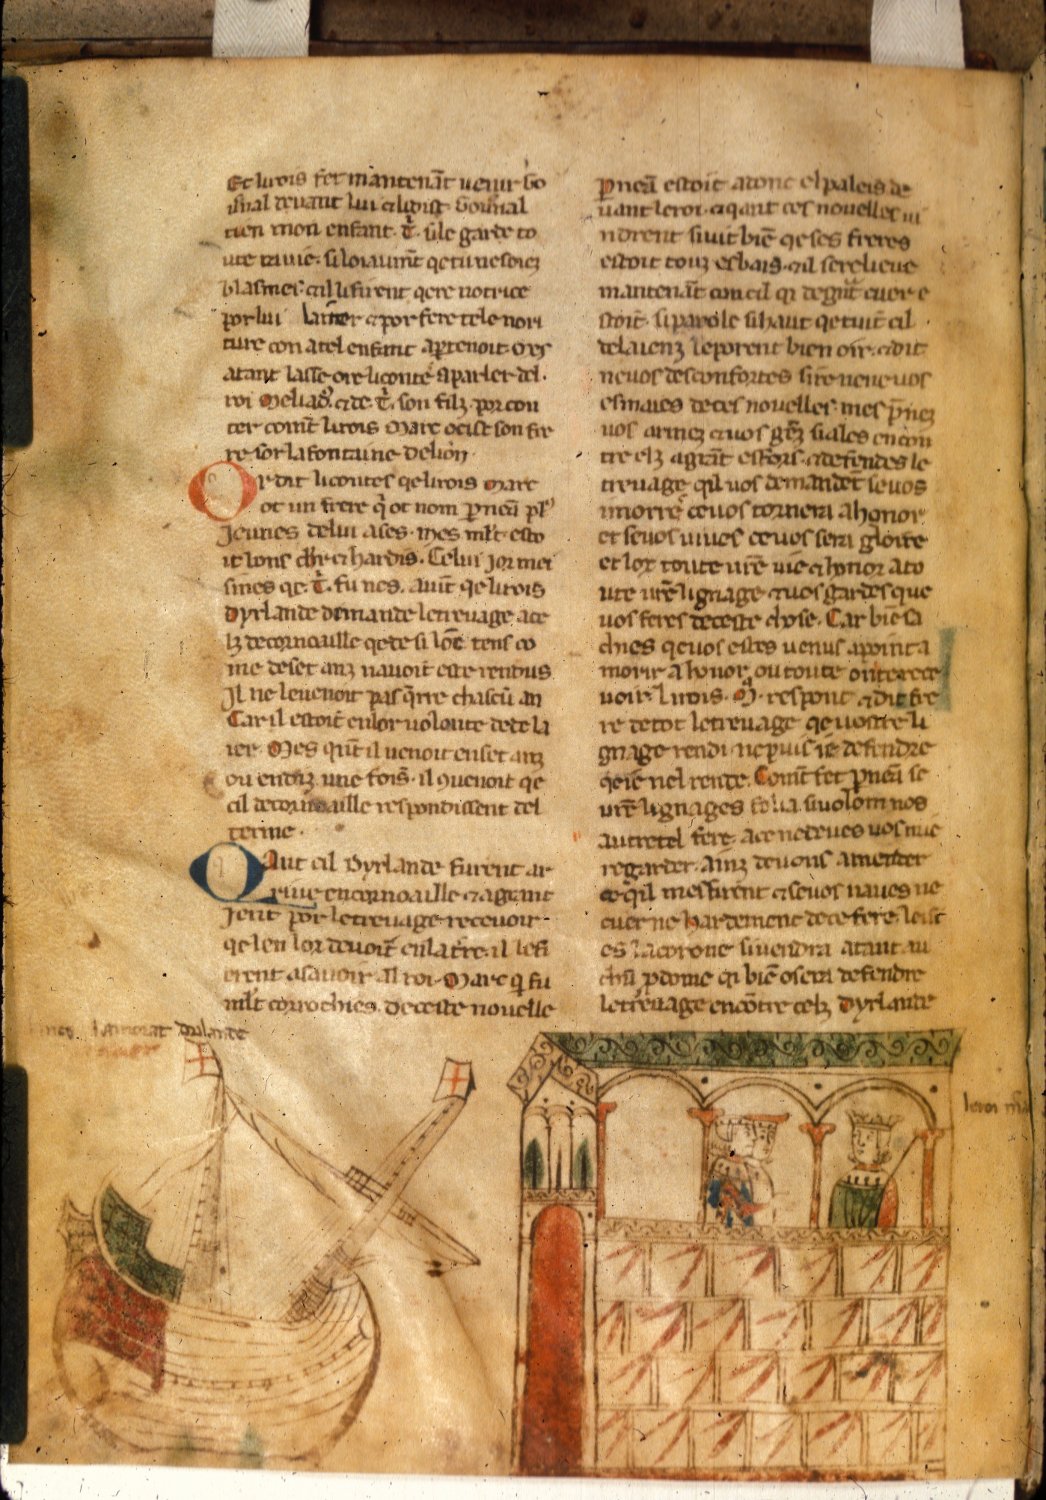 Et li rois fet mantenāt venir Go
uernal deuant lui ⁊ li dist Gouernal
tien mon enfant. T̄. ⁊ le garde to
ute ta uie. si loiaumēt qe tu ne soiez
blasmes. ⁊ il li firent qere norrice
por lui laitier ⁊ por fere tele nori
ture con a tel enfant apartenoit. Ores
atant lasse ore li conte a parler del.
roi Meliad'. ⁊ de. T̄. son filz. por con
ter comt̄ li rois Marc ocist son fre
re sor la fontaine de lion
Or dit li contes qe li rois Marc
ot un frere q̄ ot nom pneā pl'
Jeunes de lui ases. mes ml't esto
it bons chr ⁊ hardis. Celui jor mei
smes qe. T̄. fu nes. auīt qe li rois
dyrlande demande le treuage a ce
lz de cornoaille qe de si lōc tens co
me de set anz nauoit este rendus
Jl ne le uenoit pas q̄rre chascū an
Car il estoit en lor uolonte de de la
ier. Mes qn̄t il uenoit en set anz
ou en diz une fois. il 9uenoit qe
cil de cornoaille respondissent del
terme.
Qant cil dyrlande furent ar
riue en cornoaille ⁊ a grant
Jent por le treuage receuoir
qe len lor deuoit en la t̄re. il le fi
erent asauoir al roi. Marc q̄ fu
ml't corrochies. De ceste nouelle
pneā estoit adonc el paleis de
uant le roi. ⁊ qant ces nouelles ui
ndrent si uit biē qe ses freres
estoit touz esbais. ⁊ il se relieue
mantenāt com cil qi de grāt cuer e
stoit. si parole si haut qe tuit cil
de laienz le porent bien oir. ⁊ dit
ne uos desconfortes sire ne ne uos
esmaies de ces nouelles. mes p̄nez
uos armez ⁊ uos gēz si ales encon
tre elz a grāt esfors. ⁊ defendes le
treuage qil uos demandēt se uos
i morre ce uos tornera a honor
et se uos uiues ce uos sera gloire
et lox toute ur̄e uie ⁊ honor a to
ute ur̄e lignage ⁊ uos gardes que
uos feres de ceste chose. Car biē sa
chies qe uos estes uenus a point a
morir a honor ou toute onte rece
uoir. li rois. M. respont ⁊ dit fre
re de tot le treuage qe uostre li
gnage rendi ne puis ie defendre
qe ie nel rende. Comt̄ fet pneā se
ur̄e lignages folia si uolom nos
autretel fere. a ce ne deues uos mie
regarder. ainz deuons amender
ce qil mesfirent ⁊ se uos naues ne
cuer ne hardement de ce fere. leist
es la corone si uendra atant au
chū pdome qi biē osera defendre
le treuage encōtre celz dyrlande
lamorat dirlande
le roi